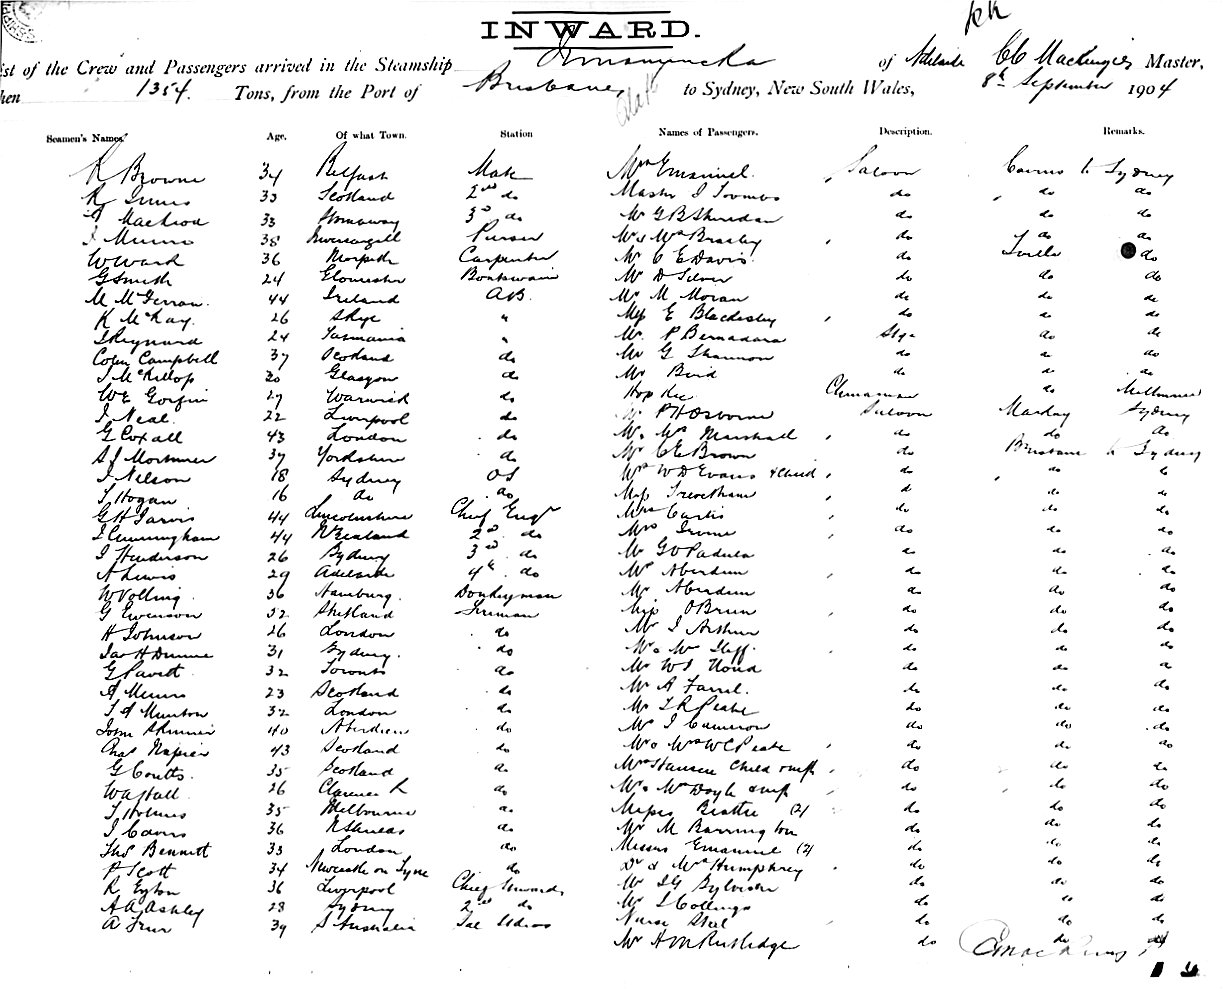 INWARD.
ist of the Crew and Passengers arrived in the Steamship Innamincka of Adelaide CC Mackenzie Master,
hen 1354. Tons, from the Port of Brisbane, to Sydney, New South Wales, 8th September 1904
Seamen's Names. Age. Of what Town. Station Names of Passengers. Description. Remarks.
R Browne 34 Belfast Mate Mrs Emanuel Saloon Cairns to Sydney
R Innes 33 Scotland 2nd do Master J Toombs do do do
MacLeod 33 Stornaway 3rd do Mr G B Sheridan do do do
J Munro 38 Invercargill Purser Mr & Mrs Brasley do do do
W Ward 36 Morpeth Carpenter Mr C E Davis do Tville do
G Smith 24 Gloucester Boatswain Mr D Silver do do do
M McGerran 44 Ireland AB. Mr M Moran do do do
K McKay. 26 Skye " Miss E Blackesley do do do
Reynard 24 Tasmania " Mr P Bernadara Stge do do
Colin Campbell 37 Scotland do Mr G Shannon do do
J McKillop 20 Glasgow do Mr Bird do do do
WE Gorfin 27 Warwick do Hop Kee Chinaman do Melbourne
J Neal 22 Liverpool do P H Osborne Saloon Mackay Sydney
G Coxall 43 London do Mr & Mrs Marshall do do do
S J Mortimer 37 Yorkshire do Mr CE Brown do Brisbane to Sydney
J Nelson 18 Sydney OS Mrs W D Evans & child do do
T Hogan 16 do do Miss Trevethan do do
G H Jarvis 44 Lincolnshire Chief Engr Mrs Curtis do do do
J Cunningham 44 N Zealand 2nd do Mrs Irvine do do do
J Henderson 26 Sydney 3rd do Mr GV Padula do do
A Lewis 29 Adelaide 4th do Mrs Aberdein do do do
W Volling 36 Hamburg. Donkeyman Mr Aberdein do do do
G Evenson 52 Shetland Fireman Miss O'Brien do do do
H Johnson 26 London do Mr J Arthur do do do
Jas H Dunne 31 Sydney. do Mr & Mrs do do do
G Pavett 32 Toronto do Mr W J do do
A Munro 23 Scotland do Mr A Farrel. do do do
J A Munton 32 London do Mr J R Peake do do do
John Skinner 40 Aberdeen do Mr J Cameron do do do
Chas Napier 43 Scotland do Mr & Mrs W C Peake do do do
G Coutts. 35 Scotland do Mrs Hansen Child & inft do do
W A Hall 26 Clarence R do Mr & Mrs Doyle & inft do do do
T Holmes 35 Melbourne do Misses Beattie (2) do do do
J Cairns 36 N Shields do Mr M Barrington do do do
Thos Bennett 33 London do Misses Emanuel (2) do do do
P Scott 34 Newcastle on Tyne do Dr & Mrs Humphrey do do do
R Eyton 36 Liverpool Chief Steward Mr J G Sylvester do do do
A A Ashley 28 Sydney 2nd do Mr J Collings do do do
A 39 S Australia Nurse Steel do do do
Mr H M Rutledge do do